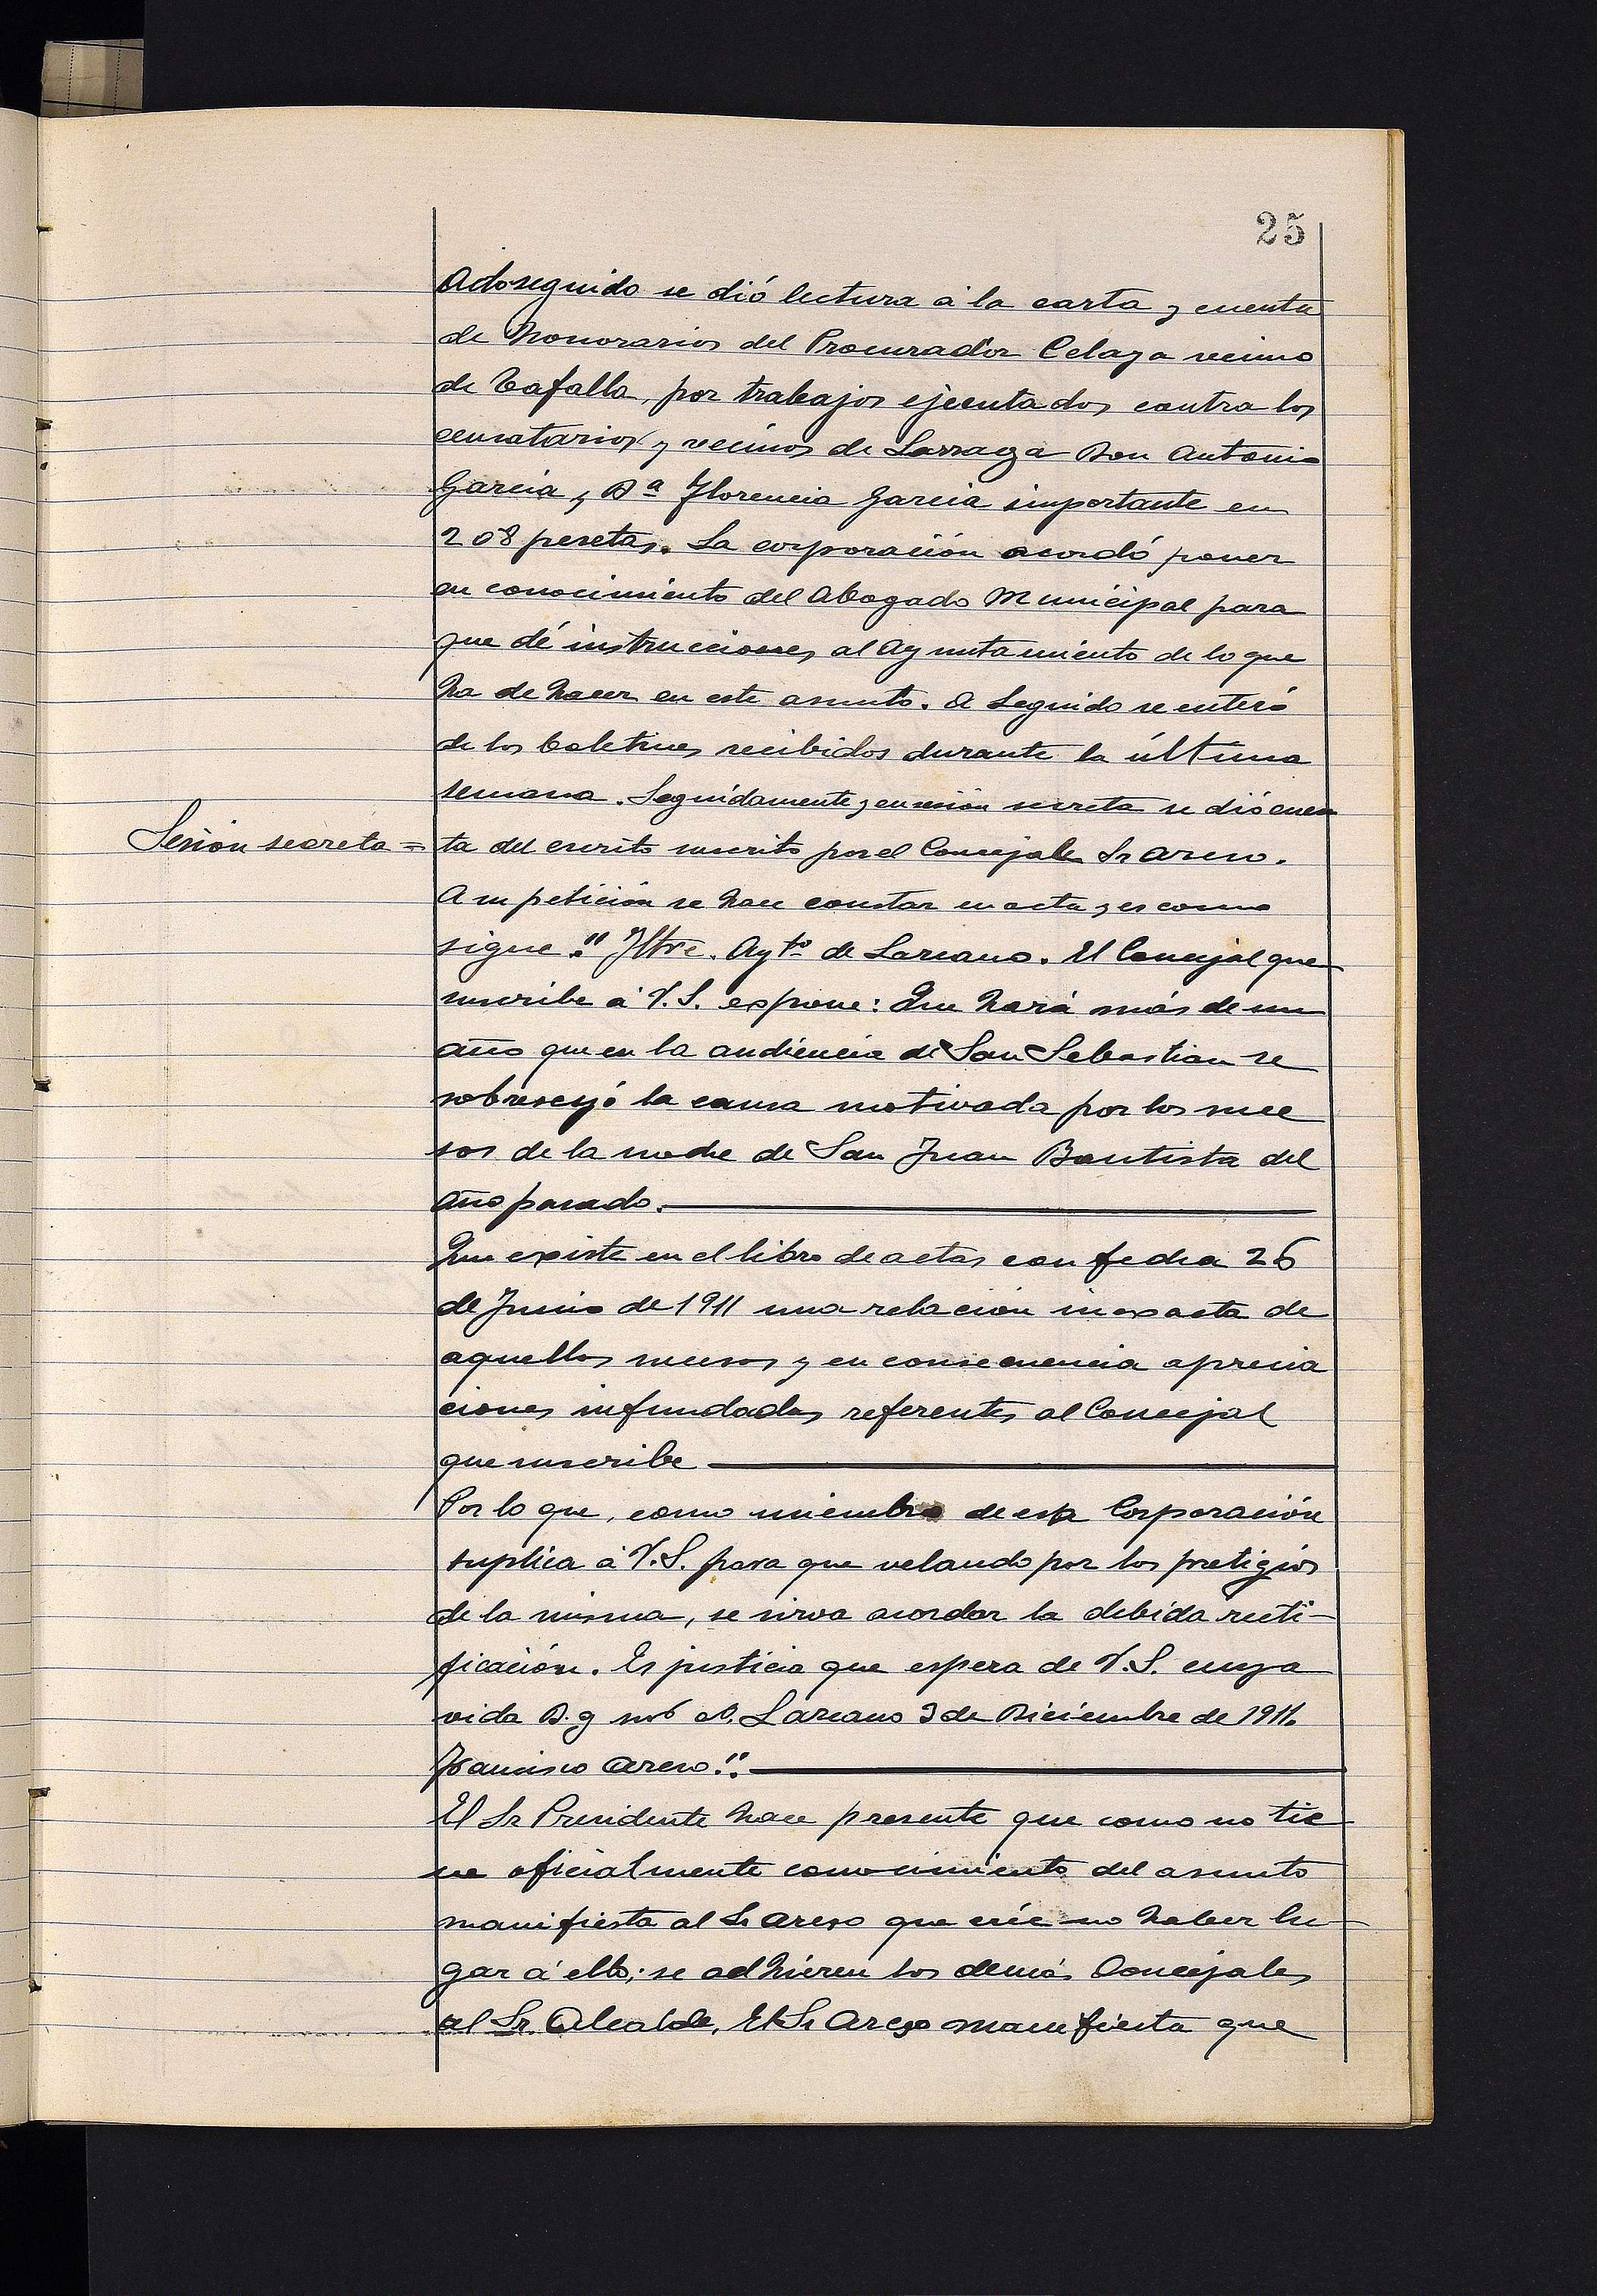 25
Acto seguido se dió lectura á la carta y cuenta
de honorarios del Procurador Celaya vecino
de Tafalla, por trabajos ejecutados contra los
censatarios y vecinos de Larraga Don Antonio
Garcia y Dª Florencia Garcia importante en
208 pesetas. La corporación acordó poner
en conocimiento del Abogado Municipal para
que dé instrucciones al Ayuntamiento de lo que
ha de hacer en este asunto. A seguido se enteró
de los boletines recibidos durante la última
semana. Seguidamente y en sesión secreta se dió cuen
Sesión secreta = ta del escrito suscrito por el Concejal Sr Areso.
A su petición se hace constar en acta y es como
sigue: "Iltre. Aytº de Lazcano. El Concejal que
suscribe á V.S. expone: Que hará más de un
año que en la audiencia de San Sebastian se
sobreseyó la causa motivada por los suce
sos de la noche de San Juan Bautista del
año pasado.
Que existe en el libro de actas con fecha 26
de Junio de 1911 una relación inexacta de
aquellos sucesos y en consecuencia aprecia
ciones infundadas referentes al Concejal
que suscribe
Por lo que, como miembro de esta Corporación
suplica á V.S. para que velando por los pretigios
de la misma, se sirva acordar la debida recti-
ficación. Es justicia que espera de V.S. cuya
vida D. g Lazcano 3 de Diciembre de 1911.
Francisco Areso".
El Sr Presidente hace presente que como no tie
ne oficialmente conocimiento del asunto
manifiesta al Sr Areso que crée no haber lu-
gar á ello; se adhieren los demás Concejales
al Sr. Alcalde. El Sr Areso manifiesta que